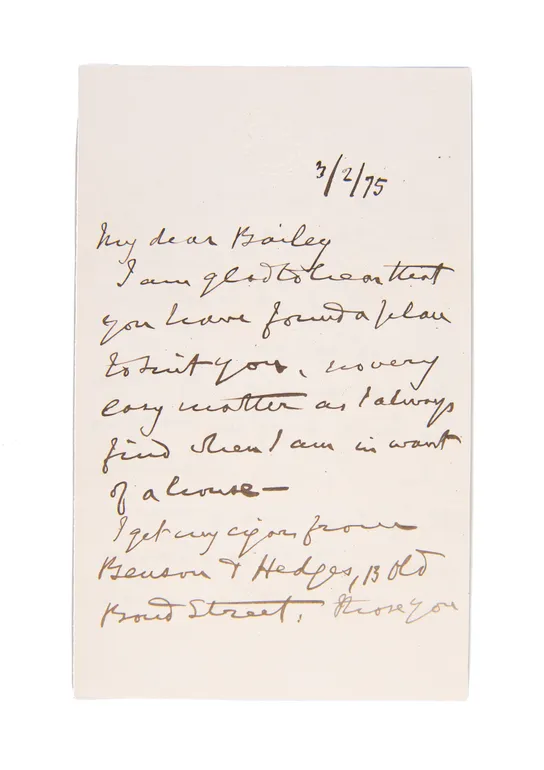 3/2/75
My dear Bailey
I am glad to hear that
you have found a place
to suit you, no very
easy matter as I always
find when I am in want
of a house —
I get my cigars from
Benson & Hedges, 13 Old
Bond Street. Those you